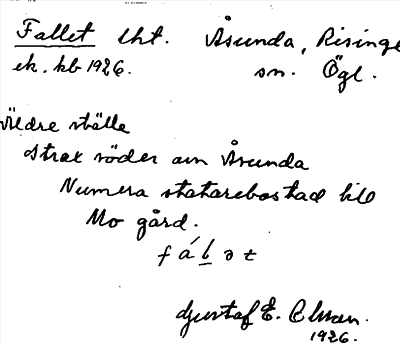 Fallet lht. Åsunda, Risinge
ek. kb 1926. sn. Ögl.
Äldre ställe
strax söder om Åsunda
Numera statarebostad till
Mo gård.
f á l ə t
Gustaf E. Olsson.
1926.